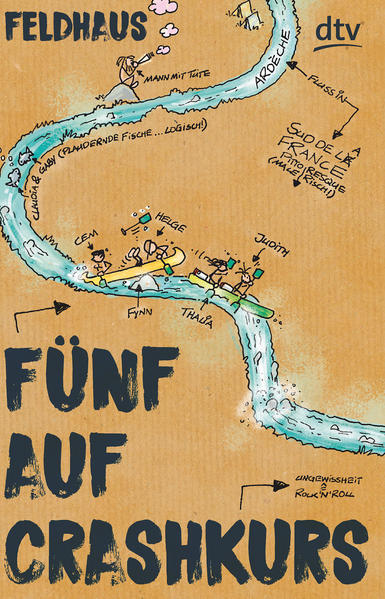 FELDHAUS
dtv
MANN MIT TÜTE
ARDÈCHE
FLUSS IN
SUD DE LA
FRANCE
PITTORESQUE
(MALERISCH!)
CLAUDIA & GABY (PLAUDERNDE FISCHE...LOGISCH!)
CEM
HELGE
JUDITH
FYNN
THALIA
FÜNF
AUF
CRASHKURS
UNGEWISSHEIT
&
ROCK'N'ROLL